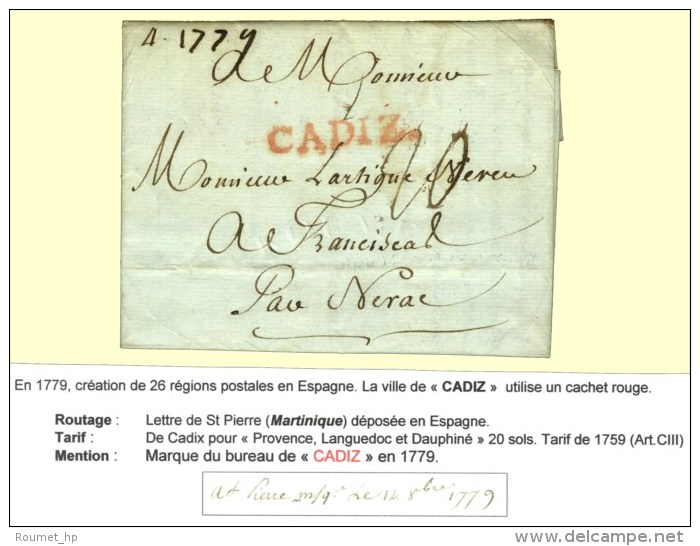 4. 1779
A Monsieur
CADIZ.
20
Monsieur Lartigue
A
Par Nerac
En 1779, création de 26 régions postales en Espagne. La ville de « CADIZ » utilise un cachet rouge.
Routage : Lettre de St Pierre (Martinique) déposée en Espagne.
Tarif : De Cadix pour « Provence, Languedoc et Dauphiné » 20 sols. Tarif de 1759 (Art.CIII)
Mention : Marque du bureau de « CADIZ » en 1779.
Le 12 8bre 1779
Roumet_hp
delcampe.net